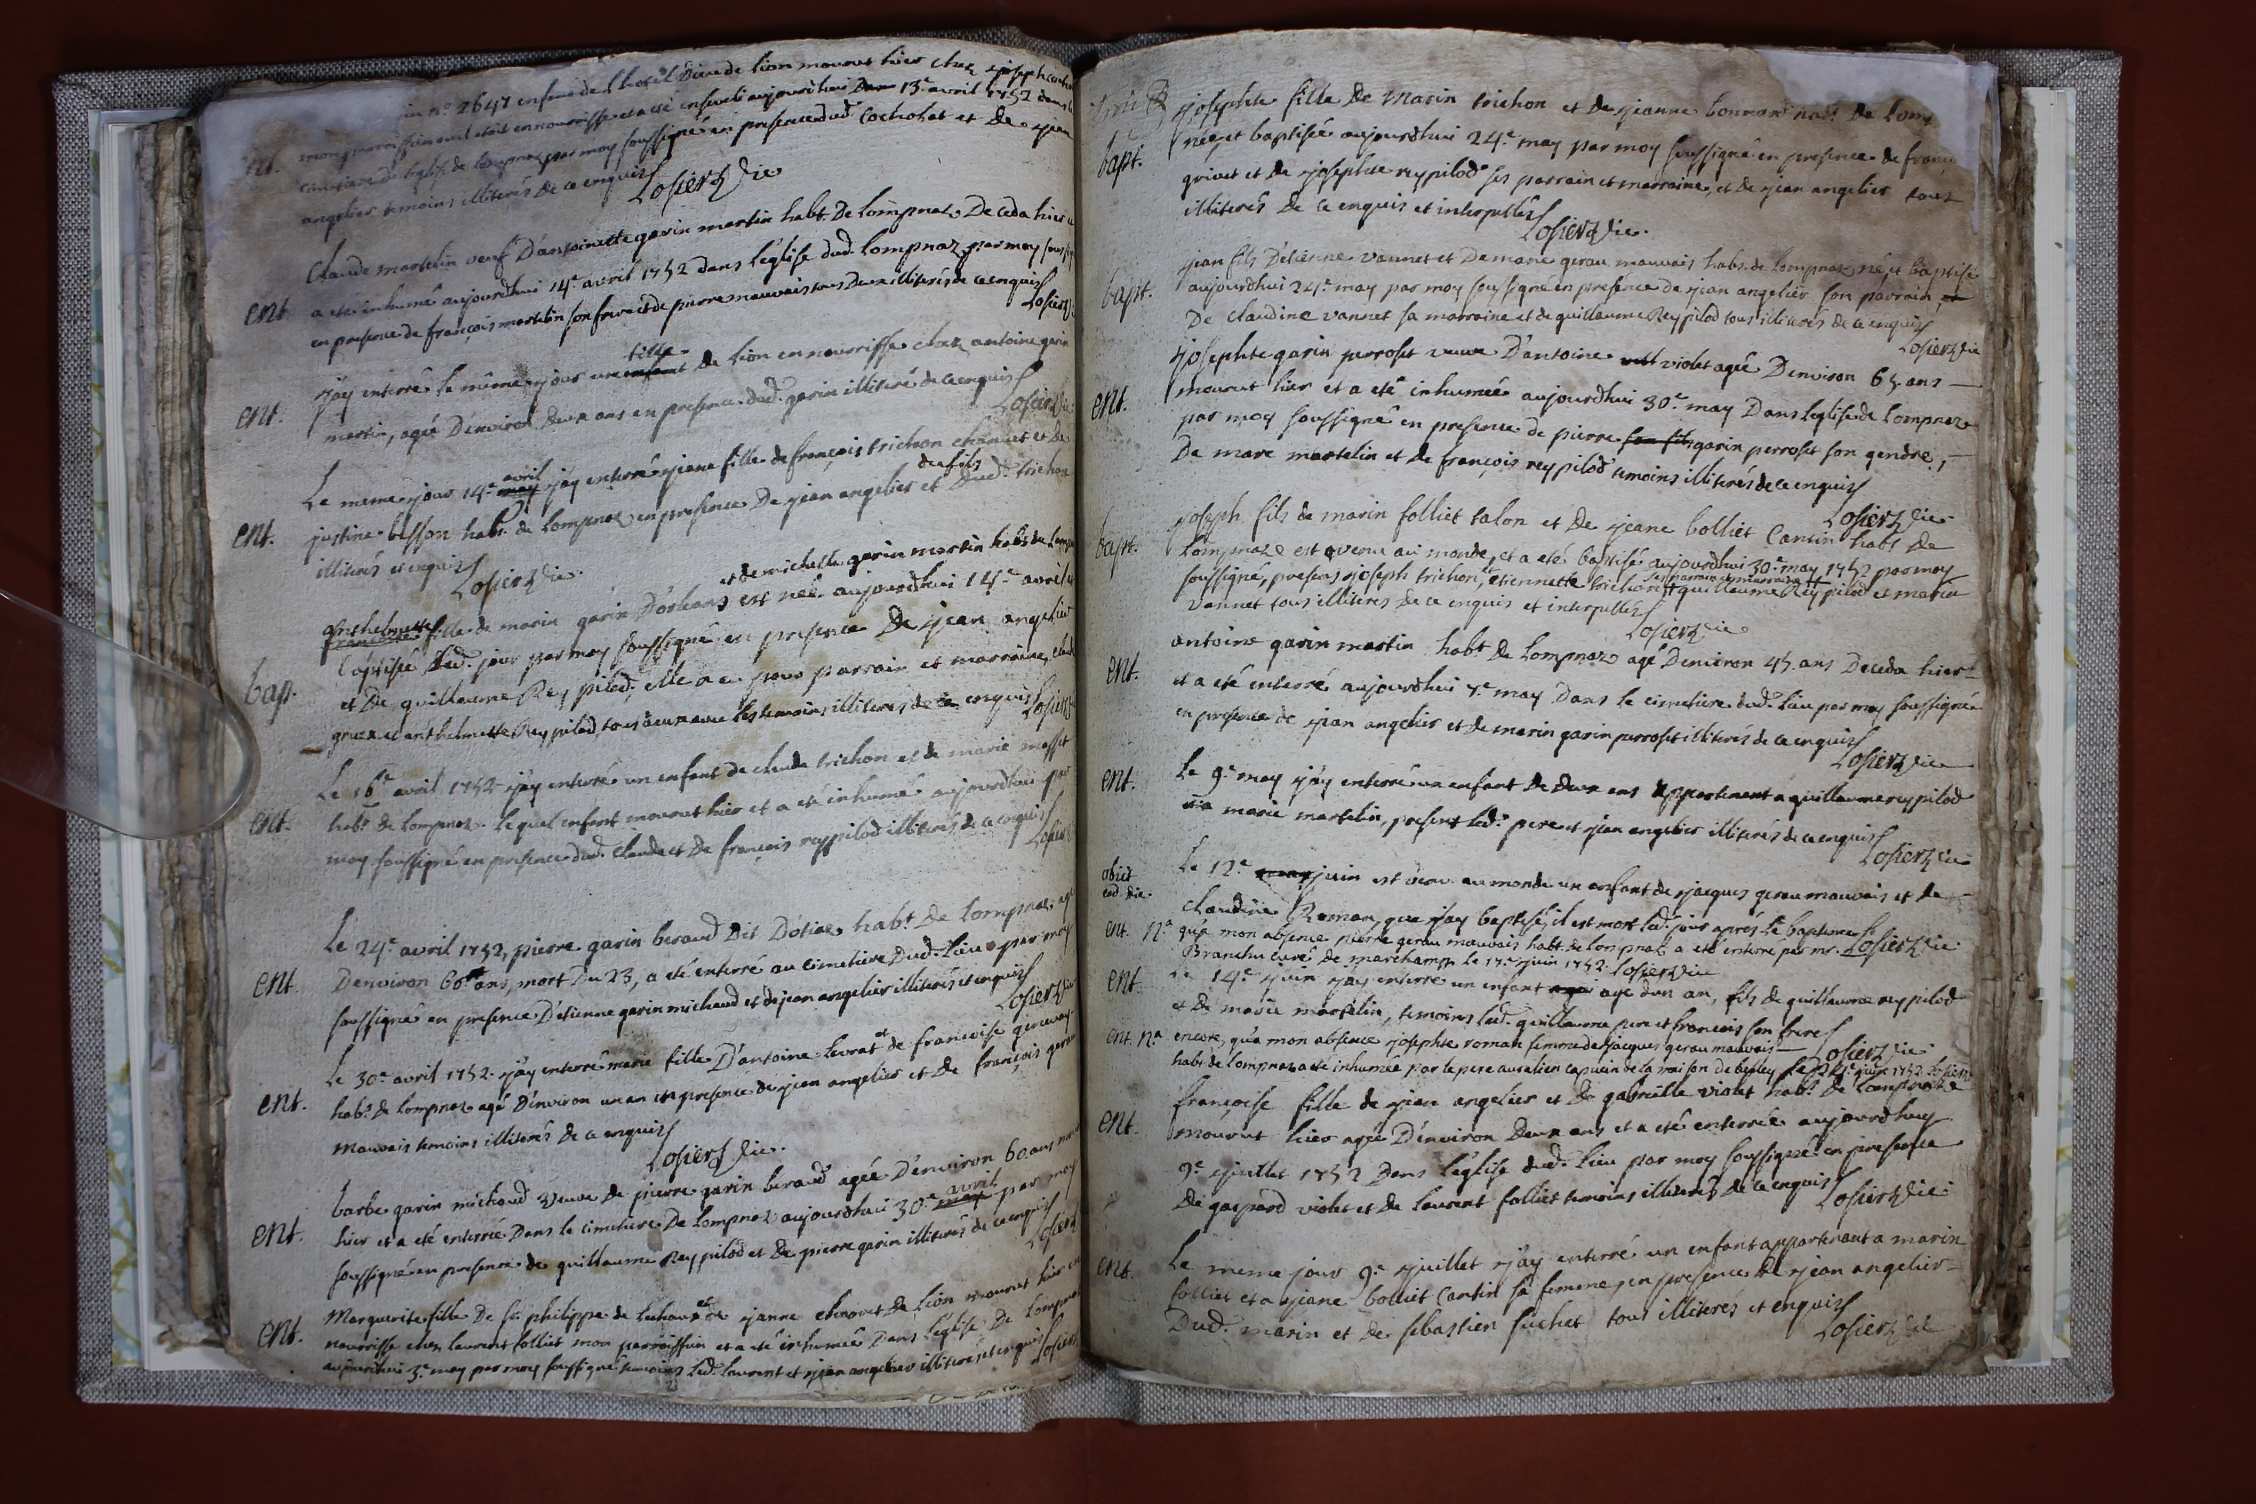 in n.o 2647 enfant de l'hotel Dieu de lion mourut hier chez joseph
mon parroissien ou il etoit en nourrisse et a eté enseveli aujourdhui 13.e avril 1752 dans
ent. cimetiere de l'église de lompnaz par moy soussigné en presence dud. Cochohat et de jean
angelier temoins illiterés de ce enquis
Losierz vic
Claude martelin veuf D'antoinette garin martin hab.t De lompnaz Deceda hier
ent. a eté inhumé aujourdhui 14.e avril 1752 dans l'église dud. lompnaz par moy
en presence de françois martelin son frere et de pierre mauvais tous deux illiterés de ce enquis
Losierz
fille
j'ay enterré le même jour une enfant de lion en nourrisse chez antoine garin
ent. martin, agée D'environ deux ans en presence dud. garin illiteré de ce enquis
Losierz vic
avril
Le meme jour 14.e may j'ay enterré jeane fille de françois trichon et de
de fils
ent. justine besson hab.s de lompnaz en presence De jean angelier et Dud. trichon
illiterés et enquis
Losierz vic.
et de michelle garin martin hab.s de
anthelmette
francoise fille de marin garin D'orleans est née aujourdhui 14.e avril et
baptisée led. jour par moy soussigné en presence De jean angelier
bap. et De guillaume Rey pilod. elle a eu pour parrain et marraine,
et anthelmette Rey pilod, tous deux avec les temoins illiteres de ce enquis
Losierz
Le 16.e avril 1752 j'ay enterré un enfant de claude trichon et de marie
ent. hab.s de lompnaz. lequel enfant mourut hier et a eté inhumé aujourdhui par
moy soussigné en presence dud. Claude et De françois reypilod illiterés de ce enquis
Losierz
Le 24.e avril 1752, pierre garin beraud Dit hab.t De lompnaz, agé
ent. D'environ 60 ans, mort Du 23, a eté enterré au cimetiere Dud. lieu par moy
soussigné en presence D'etienne garin michaud et de jean angelier illiterés et enquis
Losierz vic
et
Le 30.e avril 1752. j'ay enterré marie fille D'antoine levrat de francoise
ent. hab.s de lompnaz agée D'environ un an en presence de jean angelier et De françois gerau
mauvais temoins illiterés de ce enquis
Losierz vic.
barbe garin michaud veuve de pierre garin beraud agée D'environ 60 ans
avril
ent. hier et a eté enterrée Dans le cimetiere De lompnaz aujourdhui 30.e may par moy
soussigné en presence de guillaume Rey pilod et De pierre garin illiterés de ce enquis
Losierz
et
Marguerite fille De s.r philippe de De janne de lion mourut hier en
ent. nourrisse chez laurent folliet mon parroissien et a eté inhumée Dans l'église De lompnaz
aujourdhui 3.e may par moy soussigné temoins led. laurent et jean angelier illiterés et enquis
Losierz
josephte fille De Marin trichon et de jeanne bonnard hab.s De
bapt. née et baptisée aujourdhui 24.e may par moy soussigné en presence de
grivet et de josephte reypilod ses parrain et marraine, et de jean angelier tous
illiterés De ce enquis et interpellés
Losierz vic.
jean fils D'etienne vannet et De marie gerau mauvais hab.s de lompnaz né, et baptisé
bapt. aujourdhui 24.e may par moy soussigné en presence de jean angelier son parrain, et
De claudine vannet sa marraine et de guillaume Rey pilod tous illiterés de ce enquis
Losierz vic
josephte garin perroset veuve D'antoine violet agée D'environ 65 ans
ent. mourut hier et a eté inhumée aujourdhui 30.e may Dans l'église de lompnaz
par moy soussigné en presence de pierre son fils garin perroset son gendre,
De marc martelin et de françois rey pilod temoins illiterés de ce enquis
Losierz vic
joseph fils de marin folliet talon et de jeane bolliet Cantin hab.s de
bapt. lompnaz est venu au monde, et a eté baptisé aujourdhui 30.e may 1752 par moy
ses parrain et marraine
soussigné, presens joseph trichon, etiennette trichon guillaume Rey pilod et maria
vannet tous illiteres de ce enquis et interpellés
Losierz vic
antoine garin martin hab.t de lompnaz agé D'environ 45 ans Deceda hier
ent. et a eté enterré aujourdhui 7.e may Dans le cimetiere dud. lieu par moy soussigné
en presence de jean angelier et de marin garin perroset illiterés de ce enquis
Losierz vic
ent. Le 9.e may j'ay enterré un enfant De deux ans appartenant a guillaume reypilod
a marie martelin, present led. pere et jean angelier illiterés de ce enquis
Losierz vic
obiit
eod. die. Le 12.e juin est venu au monde un enfant de jacques gerau mauvais et de
Claudine Roman, que j'ay baptisé, il est mort led. jour aprés le baptême
Losierz vic
ent. n.a qu'a mon absence pierre gerau mauvais hab.t de lompnaz a eté enterré par m.r
Branchu curé de marchamp le 17.e juin 1752. Losierz vic
ent. Le 14.e juin j'ay enterré un enfant agé d'un an, fils de guillaume rey pilod
et de marie martelin, temoins led. guillaume pere et francois son frere
Losierz vic.
ent. n.a encore, qu'a mon absence josephte roman femme de jacques gerau mauvais
hab.s de lompnaz a eté inhumée par le pere aurelien capucin de la maison de belley le 24.e juin 1752. Losierz
françoise fille de jean angelier et De gabrielle violet hab.s de lompnaz
ent. mourut hier agée D'environ Deux ans et a eté enterrée aujourdhuy
9.e juillet 1752 Dans l'église dud. lieu par moy soussigné en presence
De gaspard violet et de laurent folliet temoins illiterés de ce enquis
Losierz vic.
ent. Le meme jour 9.e juillet j'ay enterré un enfant appartenant a marin
folliet et a jeane bolliet Cantin sa femme, en presence de jean angelier
Dud. marin et de sebastien suchet tous illiterés et enquis
Losierz vic